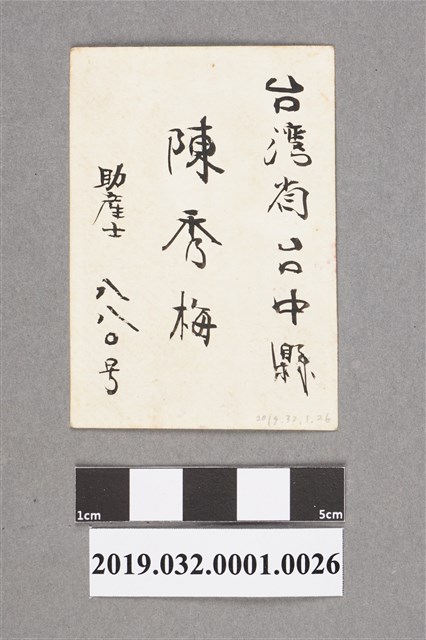 台湾省台中縣
陳秀梅
助産士 八八〇号
2019.32.1.26
1cm 5cm
2019.032.0001.0026